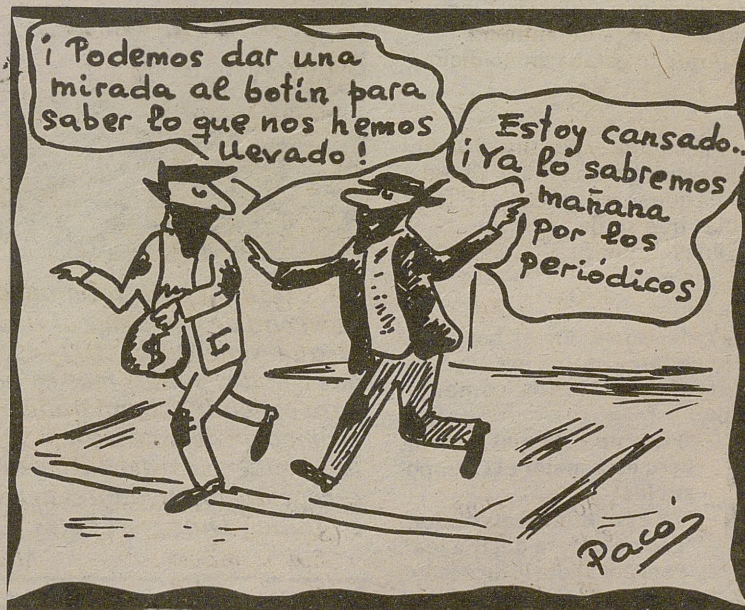 ¡Podemos dar una
mirada al botín para
saber lo que nos hemos
llevado!
Estoy cansado..
¡Ya lo sabremos
mañana
por los
periódicos
$
Paco